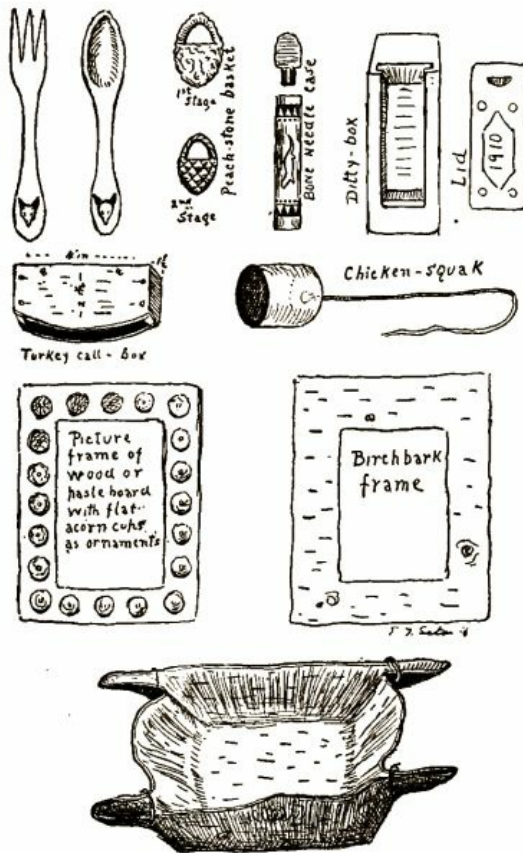 1st
Stage
2nd
Stage
Peach-stone basket
Bone needle case
Ditty-box
Lid
1910
Turkey call-box
Chicken-squak
Picture
frame of
wood or
paste board
with flat
acorn cups
as ornaments
Birchbark
frame